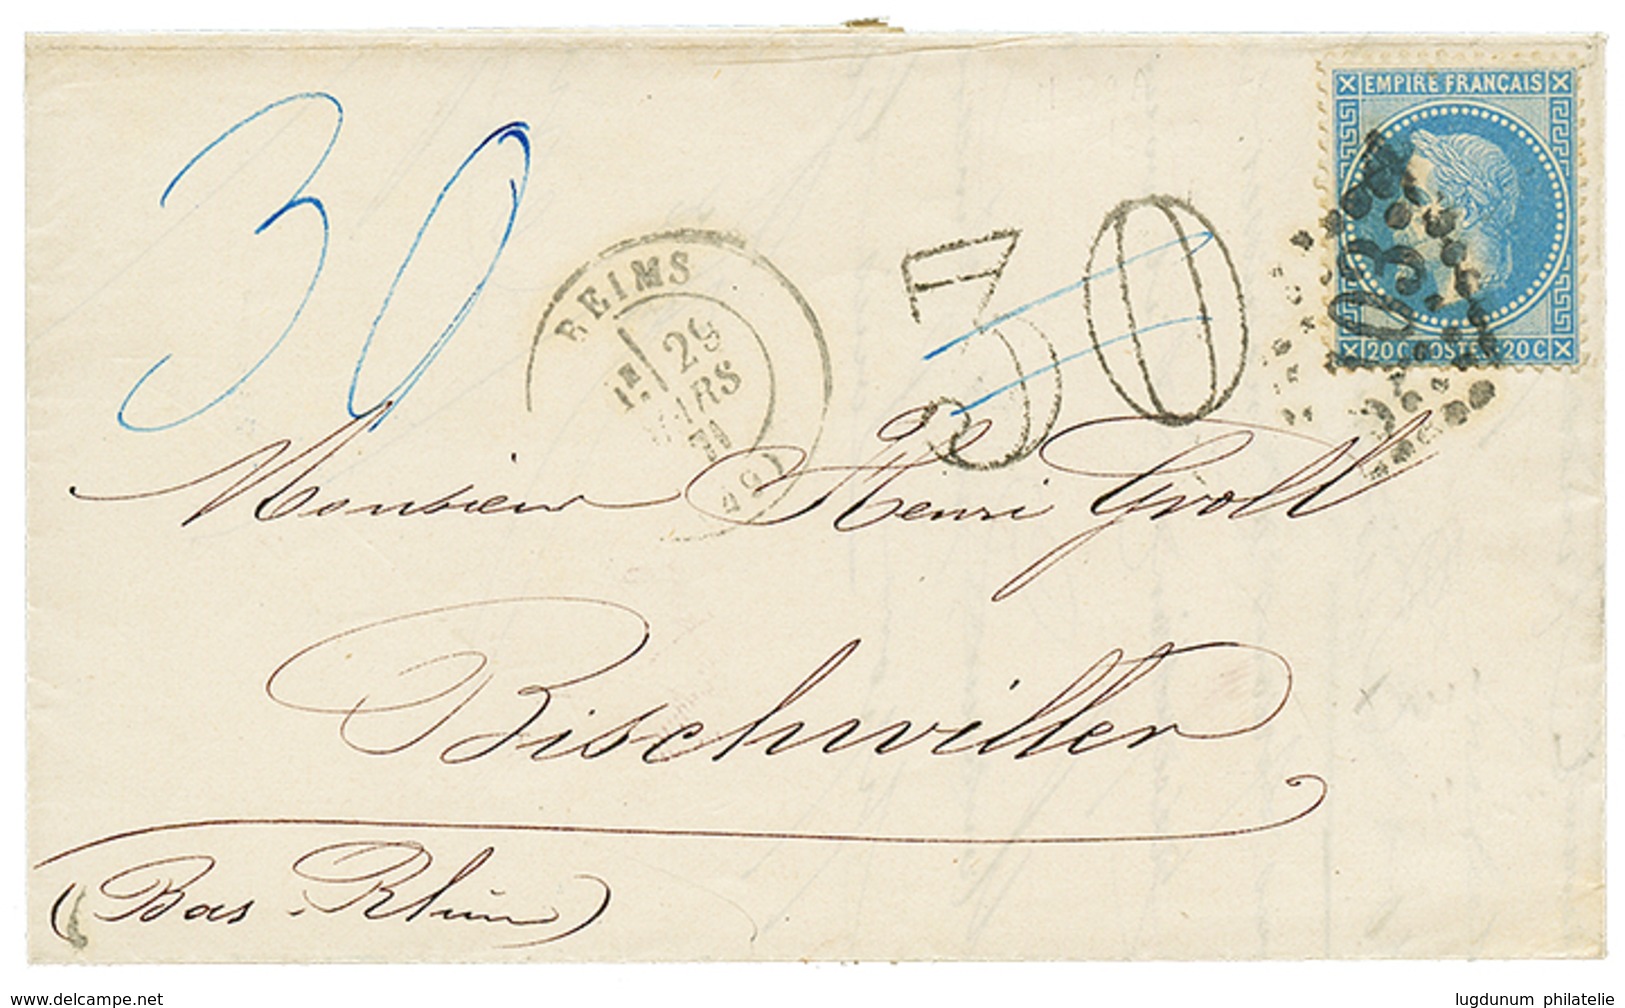 EMPIRE FRANÇAIS
20 C POSTES 20 C
30
30
REIMS
1E
29
MARS
71
(49)
Monsieur Henri Groll
Bischwiller
(Bas-Rhin)
www.delcampe.net
lugdunum philatelie